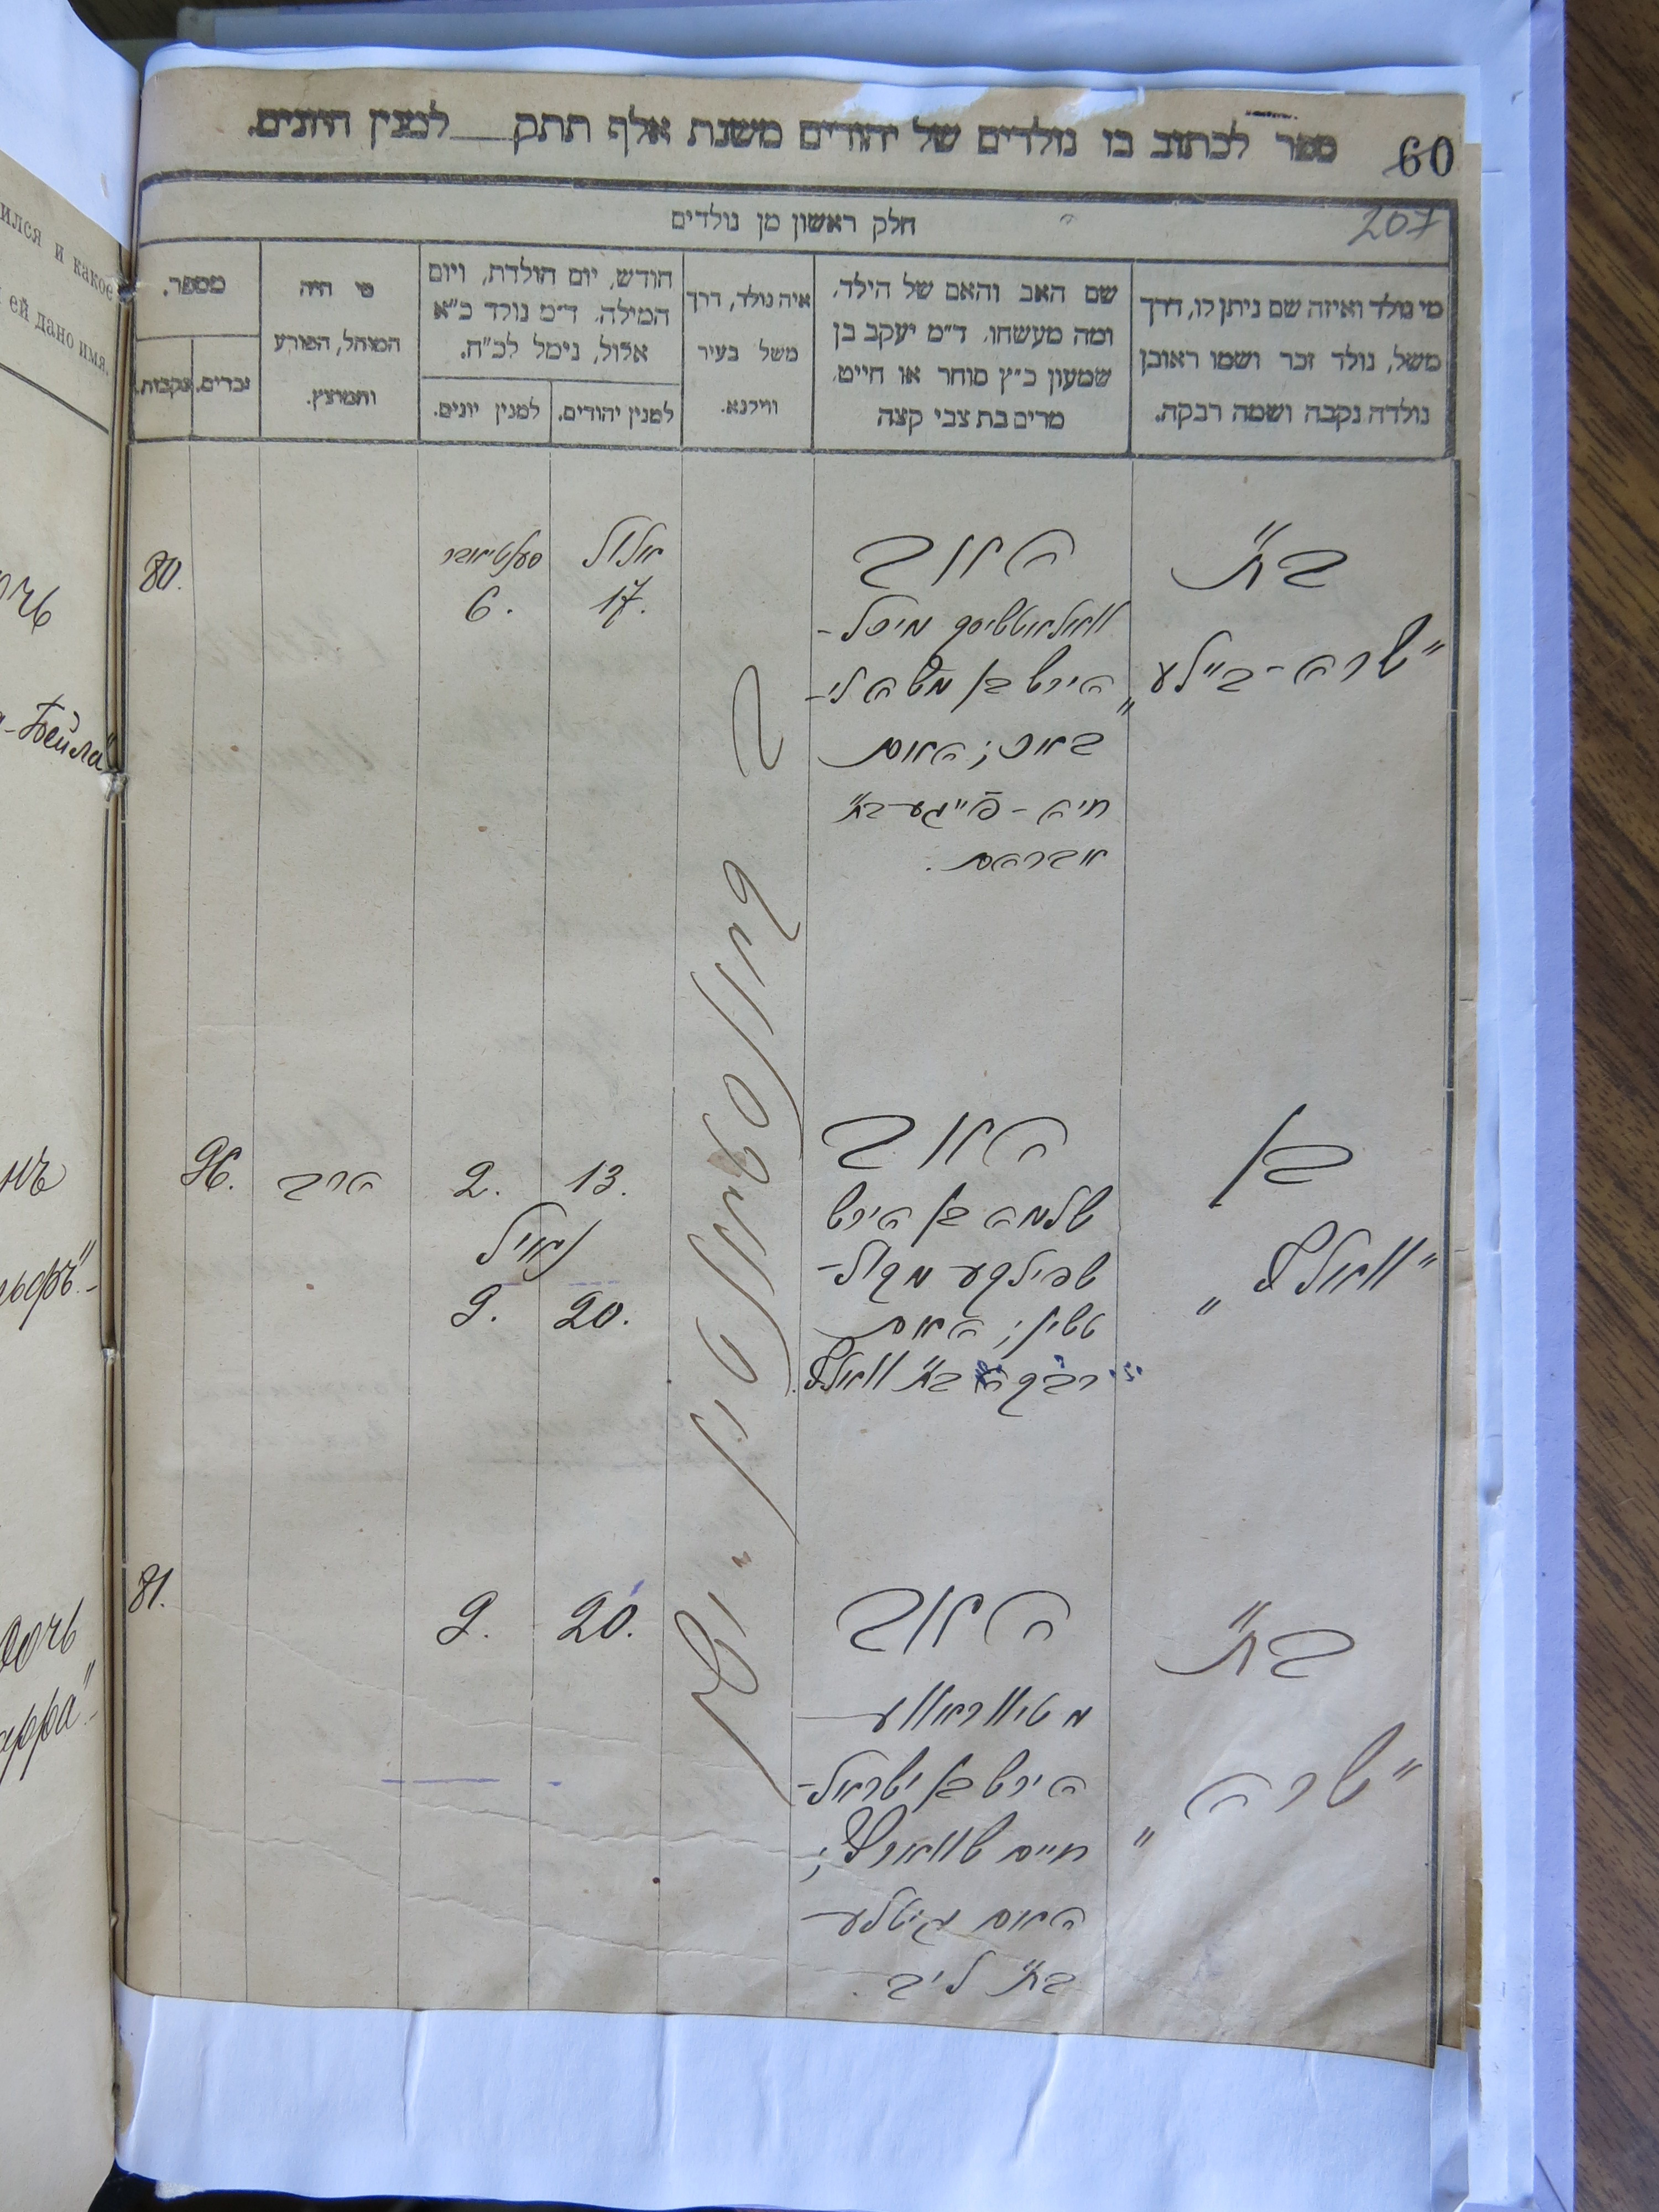 60
ספר לכתוב בו נולדים של יהודים משנת אלף תתק למנין היונים.
207
חלק ראשון מן נולדים
מי נולד ואיזה שם ניתן לו, דרך
משל, נולד זכר ושמו ראובן
נולדה נקבה ושמה רבקה.
שם האב והאם של הילד,
ומה מעשהו. ד״מ יעקב בן
שמעון כ״ץ סוחר או חייט,
מרים בת צבי קצה
איה נולד, דרך
משל בעיר
ווילנא.
חודש, יום הולדת, ויום
המילה. ד״מ נולד כ״א
אלול, נימל לכ״ח.
למנין יהודים.
למנין יונים.
מי היה
המוהל, הפורע
והמוצץ.
מספר.
זכרים.
נקבות.
בת
"שרה-ביילע"
האב
הירש בן משה לי-
באוו; האם
חיה-פייגע בת
אברהם.
אלול
17.
סעפטיאבר
6.
80.
בן
"וואלף"
האב
שלמה בן הירש
טשין; האם
רבקה בת וואלף.
13.
2.
20.
9.
הרב
96.
בת
"שרה"
האב
הירש בן ישראל-
חיים שווארץ;
האם גיטלע
בת ליב.
20.
9.
81.
илcя и какое
ей дано имя.
очь
-Бейла"
нъ
льфъ"-
дочь
арра"-